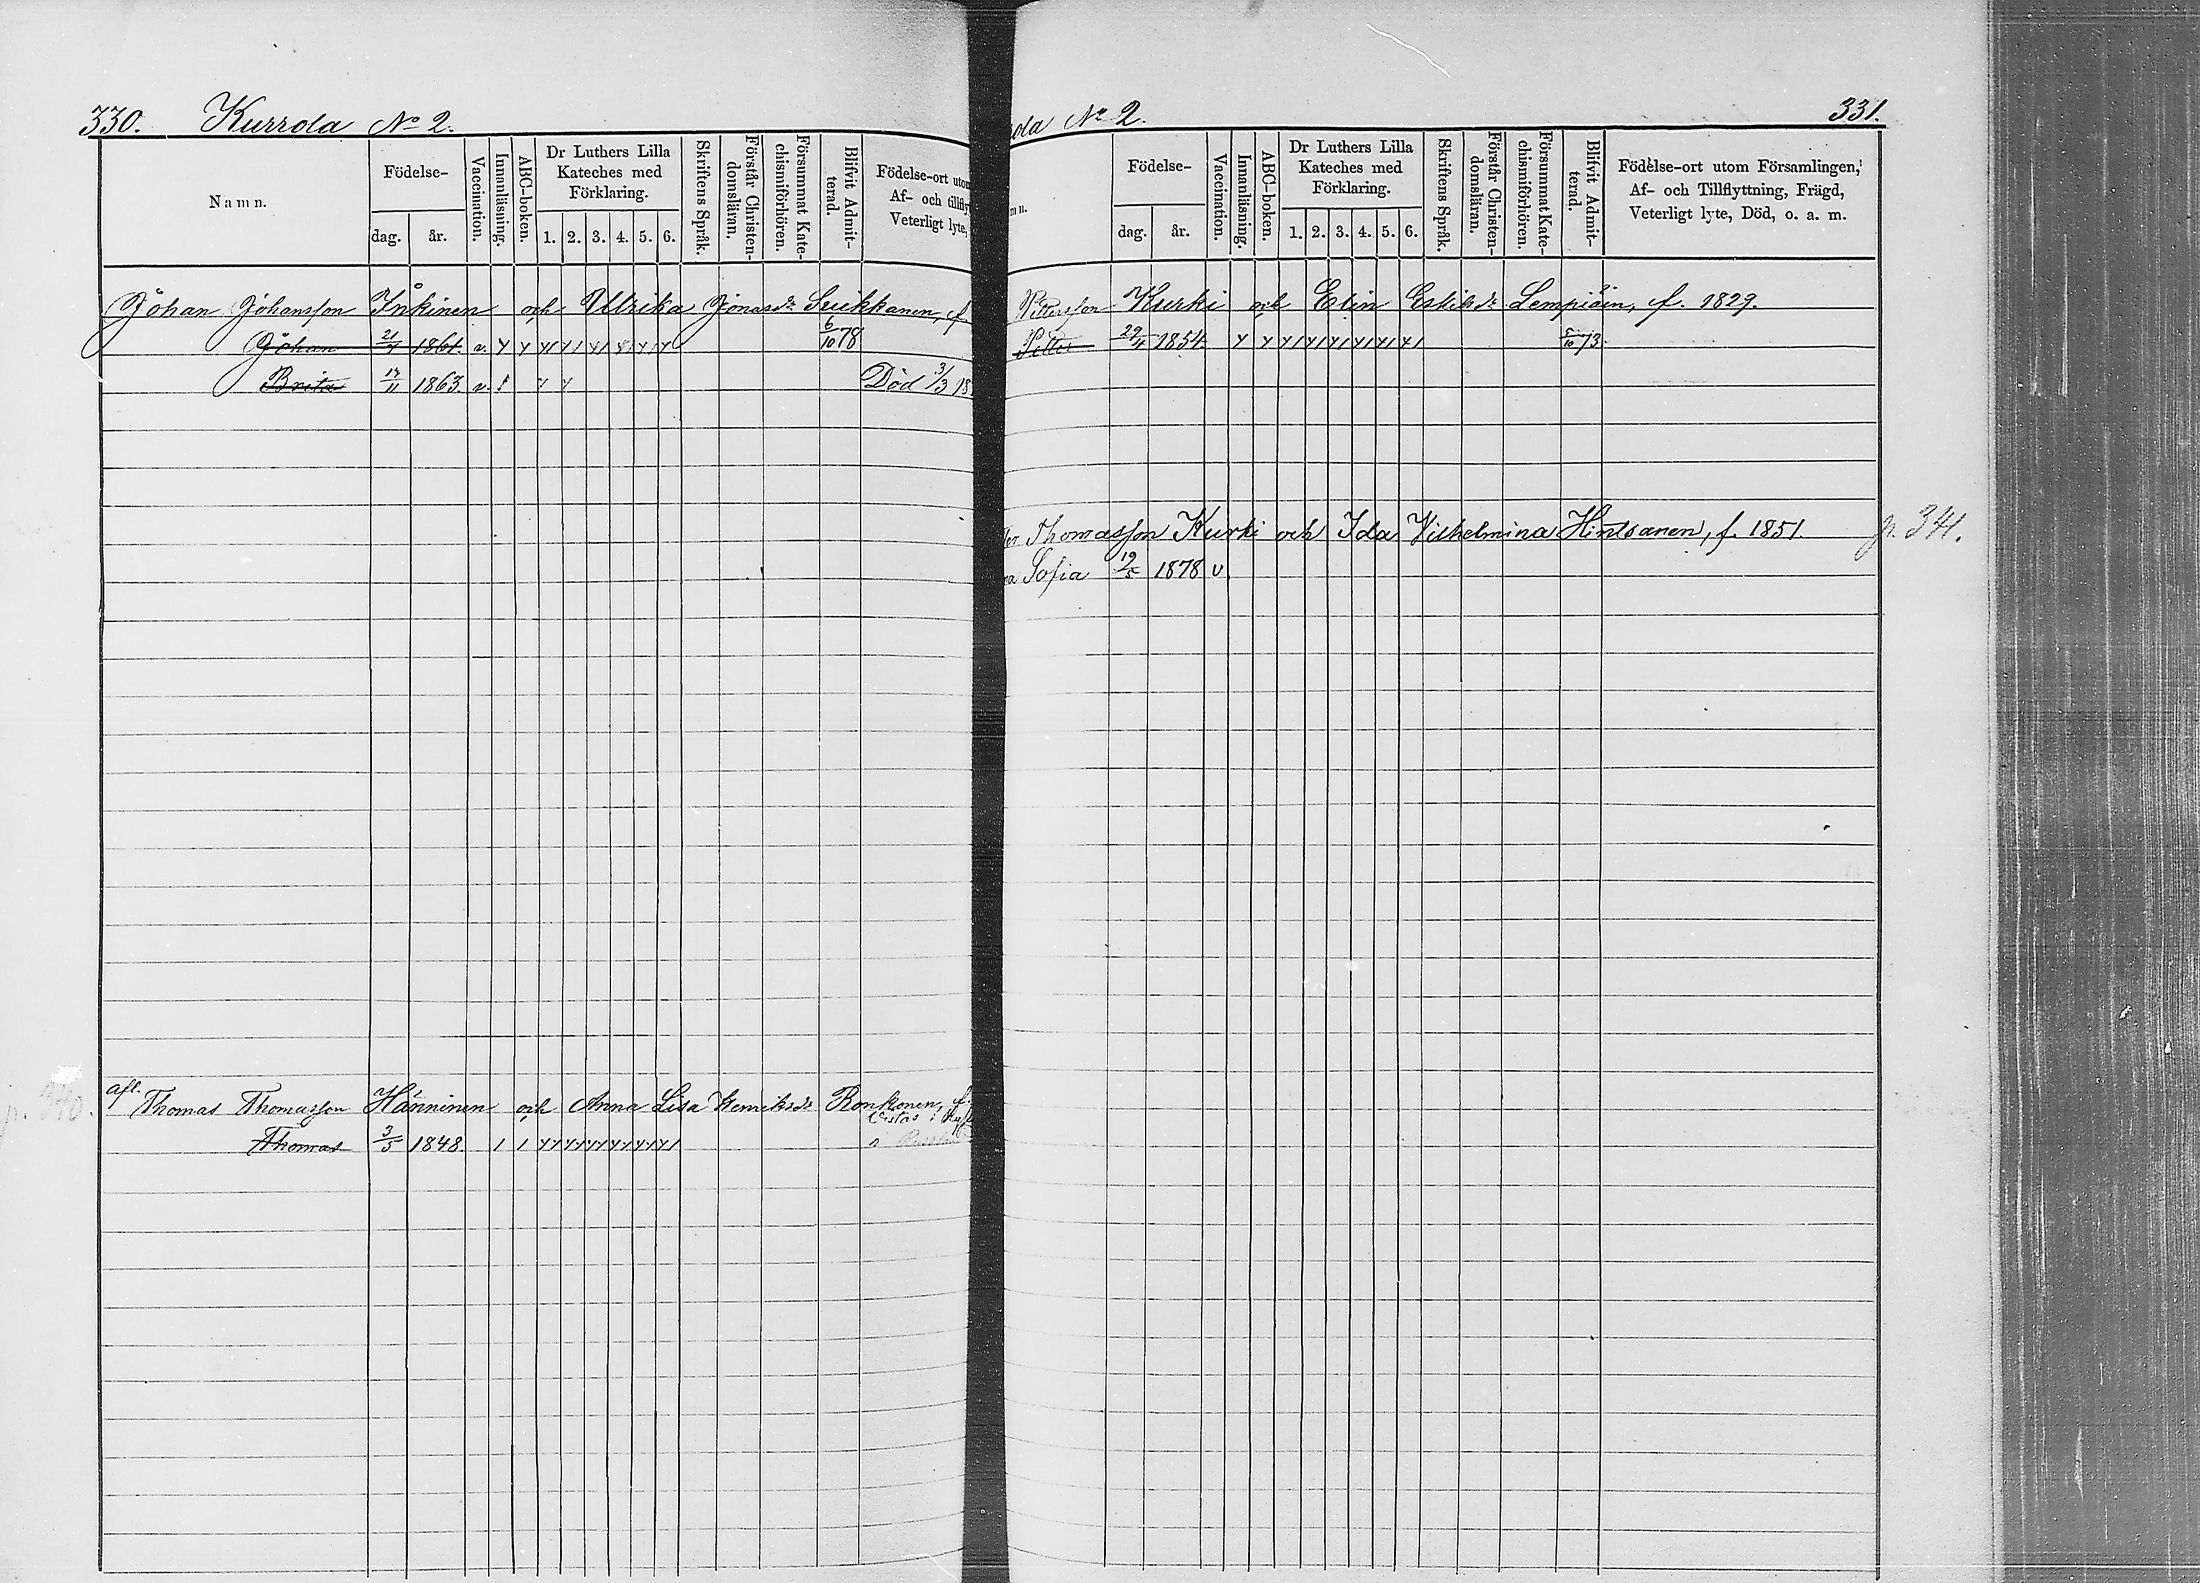 330. Kurrola No 2.
Namn.
Födelse-
dag.
år.
Vaccination.
Innanläsning.
ABC-boken.
Dr Luthers Lilla
Kateches med
Förklaring.
1. 2. 3. 4. 5. 6.
Skriftens Språk.
Förstår Christen-
domsläran.
Försummat Kate-
chismiförhören.
Blifvit Admit-
terad.
Födelse-ort utom
Af- och tillfly
Veterligt lyte,
Johan Johansson Inkinen och Ullrika Jonasdr Suikkanen, f.
Johan 21/7 1861. v. 6/10 78
Brita 17/11 1863. v. Död 3/3 18
afl. Thomas Thomasson Hänninen och Anna Lisa Henriksdr Ronkonen, f.
Thomas 3/5 1848. Vistas i
ola No 2. 331.
mn.
Födelse-
dag.
år.
Vaccination.
Innanläsning.
ABC-boken.
Dr Luthers Lilla
Kateches med
Förklaring.
1. 2. 3. 4. 5. 6.
Skriftens Språk.
Förstår Christen-
domsläran.
Försummat Kate-
chismiförhören.
Blifvit Admit-
terad.
Födelse-ort utom Församlingen,
Af- och Tillflyttning, Frägd,
Veterligt lyte, Död, o. a. m.
Pettersson Kurki och Elin Eskilsdr Lempiäin, f. 1829.
Petter 29/4 1854 5/10 73
Thomasson Kurki och Ida Vilhelmina Hintsanen, f. 1851. p. 341.
Sofia 19/5 1878 v